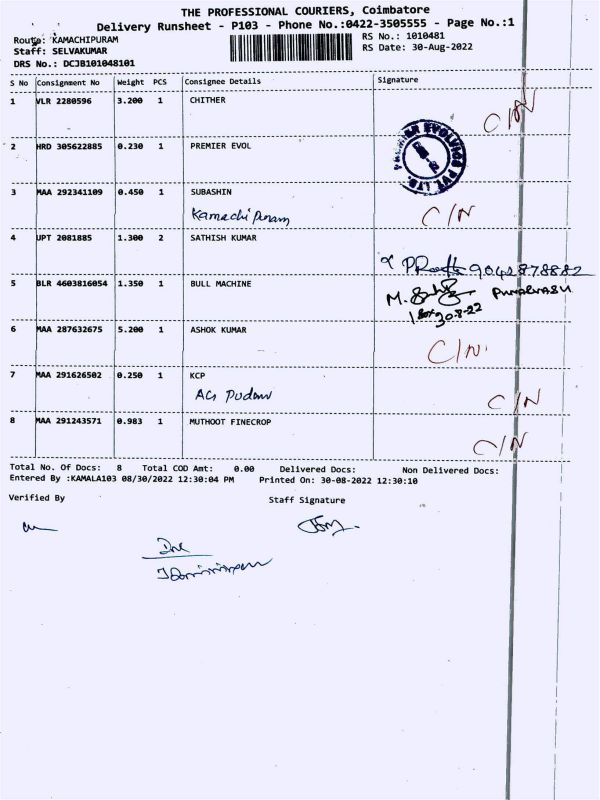 THE PROFESSIONAL COURIERS, Coimbatore
Delivery Runsheet - P103 - Phone No.:0422-3505555 - Page No.:1
Route: KAMACHIPURAM
RS No.: 1010481
Staff: SELVAKUMAR
RS Date: 30-Aug-2022
DRS No.: DCJB101048101
S No Consignment No Weight PCS Consignee Details Signature
1 VLR 2280596 3.200 1 CHITHER C/N
2 HRD 305622885 0.230 1 PREMIER EVOL
PREMIER EVOLVICS PVT. LTD.
3 MAA 292341109 0.450 1 SUBASHIN
Kamachi Puram C/N
4 UPT 2081885 1.300 2 SATHISH KUMAR
9042878882
5 BLR 4603816054 1.350 1 BULL MACHINE
M. PUNARVASU
30-8-22
6 MAA 287632675 5.200 1 ASHOK KUMAR C/N.
7 MAA 291626502 0.250 1 KCP
AG Pudur C/N
8 MAA 291243571 0.983 1 MUTHOOT FINECROP
C/N
Total No. Of Docs: 8 Total COD Amt: 0.00 Delivered Docs: Non Delivered Docs:
Entered By :KAMALA103 08/30/2022 12:30:04 PM Printed On: 30-08-2022 12:30:10
Verified By Staff Signature